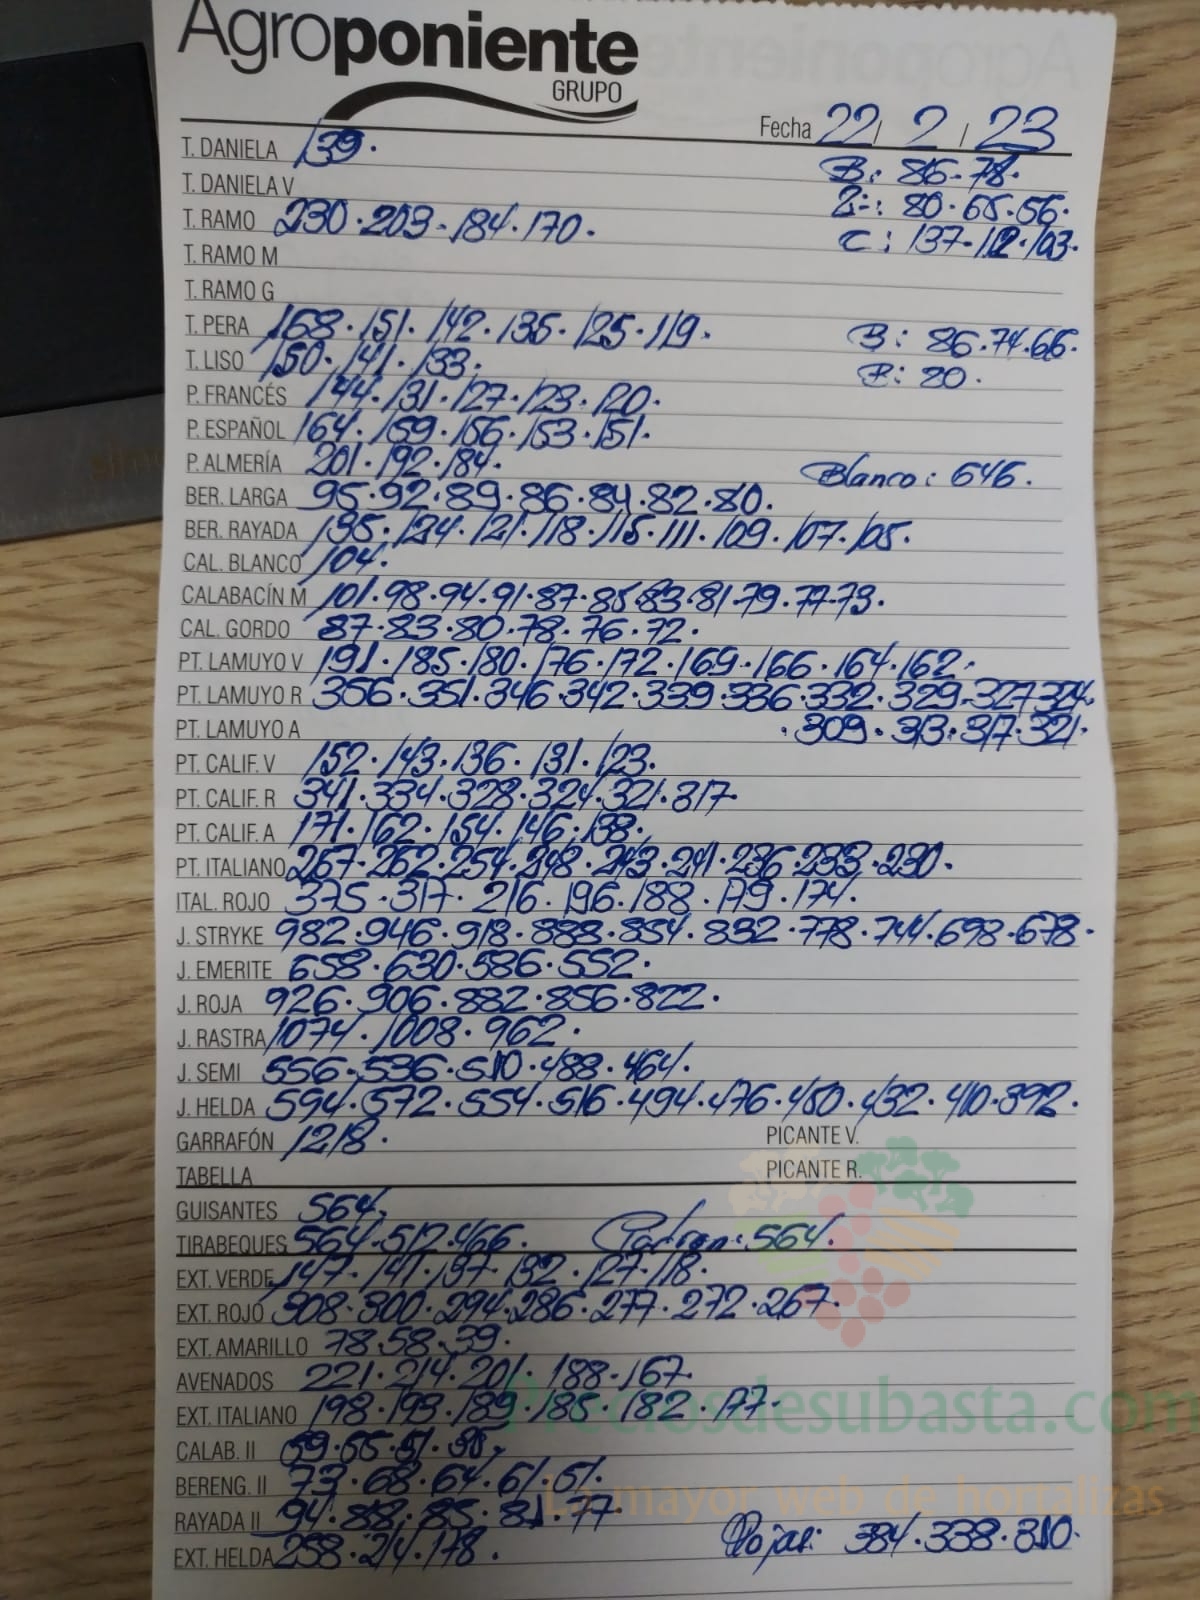 Agroponiente
GRUPO
Fecha 22/ 2 / 23
T. DANIELA 139.
B: 86-78.
T. DANIELA V
80.65.56.
T. RAMO 230.203-184.170.
C: 137-112.103.
T. RAMO M
T. RAMO G
T. PERA 168.151.142.135.125.119.
B: 86.74.66.
T. LISO 150.141.133.
B: 80.
P. FRANCÉS 144.131.127.123.120.
P. ESPAÑOL 164.159.156.153.151.
P. ALMERÍA 201.192.184.
Blanco: 646.
BER. LARGA 95.92.89.86.84.82.80.
BER. RAYADA 135.124.121.118.115.111.109.107.105.
CAL. BLANCO 104.
CALABACÍN M 101.98.94.91.87.85.83.81.79.77.73.
CAL. GORDO 87.83.80.78.76.72.
PT. LAMUYO V 191.185.180.176.172.169.166.164.162.
PT. LAMUYO R 356.351.346.342.339.336.332.329.327.324.
PT. LAMUYO A .309.313.317.321.
PT. CALIF. V 152.143.136.131.123.
PT. CALIF. R 341.334.328.324.321.317.
PT. CALIF. A 171.162.154.146.138.
PT. ITALIANO 267.262.254.248.243.241.236.233.230.
ITAL. ROJO 375.317.216.196.188.179.174.
J. STRYKE 982.946.918.888.854.832.778.744.698.678.
J. EMERITE 658.630.586.552.
J. ROJA 926.906.882.856.822.
J. RASTRA 1074.1008.962.
J. SEMI 556.536.510.488.464.
J. HELDA 594.572.554.516.494.476.450.432.410.392.
GARRAFÓN 1218.
PICANTE V.
TABELLA
PICANTE R.
GUISANTES 564.
TIRABEQUES 564.512.466.
564.
EXT. VERDE 147.141.137.132.127.118.
EXT. ROJO 308.300.294.286.277.272.267.
EXT. AMARILLO 78.58.39.
AVENADOS 221.214.201.188.167.
EXT. ITALIANO 198.193.189.185.182.177.
Preciosdesubasta.com
CALAB. II 59.55.51.
BERENG. II 73.68.64.61.51.
La mayor web de hortalizas
RAYADA II 94.88.85.81.77
EXT. HELDA 258.214.178.
Rojas: 384.338.310.